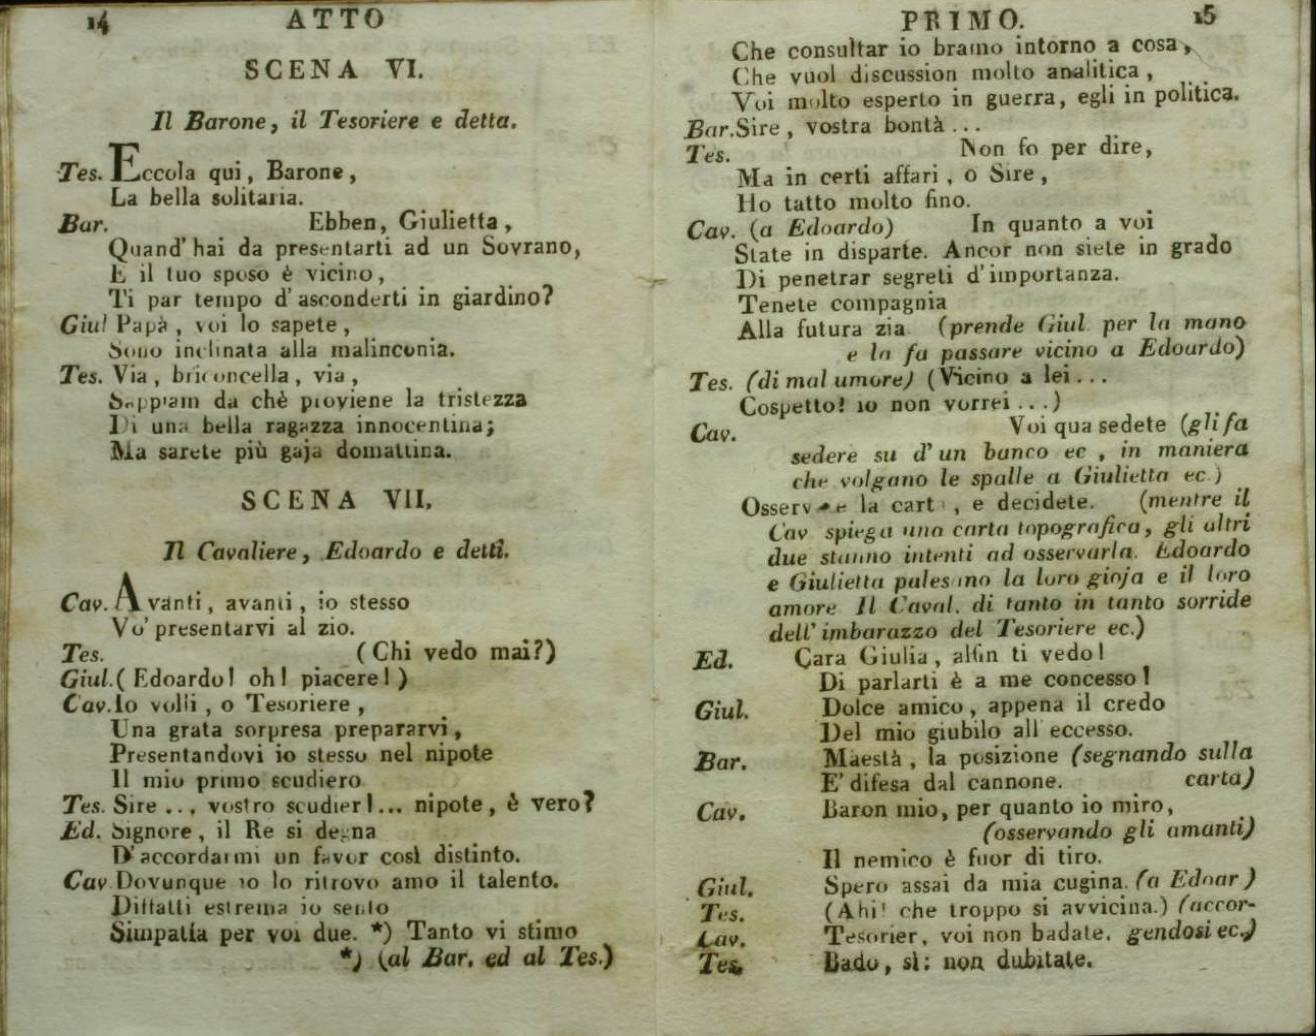 14 ATTO
SCENA VI.
Il Barone, il Tesoriere e detta.
Tes. Eccola qui, Barone,
La bella solitaria.
Bar. Ebben, Giulietta,
Quand' hai da presentarti ad un Sovrano,
E il tuo sposo è vicino,
Ti par tempo d' asconderti in giardino?
Giul Papà, voi lo sapete,
Sono inclinata alla malinconia.
Tes. Via, briconcella, via,
Sappiam da chè proviene la tristezza
Di una bella ragazza innocentina;
Ma sarete più gaja domattina.
SCENA VII.
Il Cavaliere, Edoardo e detti.
Cav. Avanti, avanti, io stesso
Vo' presentarvi al zio.
Tes. (Chi vedo mai?)
Giul. (Edoardo! oh! piacere!)
Cav. Io volli, o Tesoriere,
Una grata sorpresa prepararvi,
Presentandovi io stesso nel nipote
Il mio primo scudiero
Tes. Sire ... vostro scudier!... nipote, è vero?
Ed. Signore, il Re si degna
D' accordarmi un favor così distinto.
Cav Dovunque io lo ritrovo amo il talento.
Diffatti estrema io sento
Simpatia per voi due. *) Tanto vi stimo
*) (al Bar. ed al Tes.)
PRIMO. 15
Che consultar io bramo intorno a cosa,
Che vuol discussion molto analitica,
Voi molto esperto in guerra, egli in politica.
Bar. Sire, vostra bontà...
Tes. Non fo per dire,
Ma in certi affari, o Sire,
Ho tatto molto fino.
Cav. (a Edoardo) In quanto a voi
State in disparte. Ancor non siete in grado
Di penetrar segreti d' importanza.
Tenete compagnia
Alla futura zia (prende Giul per la mano
e la fa passare vicino a Edoardo)
Tes. (di mal umore) (Vicino a lei...
Cospetto! io non vorrei...)
Cav. Voi qua sedete (gli fa
sedere su d' un banco ec, in maniera
che volgano le spalle a Giulietta ec.)
Osservate la cart, e decidete. (mentre il
Cav spiega una carta topografica, gli altri
due stanno intenti ad osservarla. Edoardo
e Giulietta palesano la loro gioja e il loro
amore Il Caval. di tanto in tanto sorride
dell' imbarazzo del Tesoriere ec.)
Ed. Cara Giulia, alfin ti vedo!
Di parlarti è a me concesso!
Giul. Dolce amico, appena il credo
Del mio giubilo all eccesso.
Bar. Maestà, la posizione (segnando sulla
E' difesa dal cannone. carta)
Cav. Baron mio, per quanto io miro,
(osservando gli amanti)
Il nemico è fuor di tiro.
Giul. Spero assai da mia cugina. (a Edoar)
Tes. (Ahi! che troppo si avvicina.) (accor-
Cav. Tesorier, voi non badate. gendosi ec.)
Tes. Bado, sì: non dubitate.